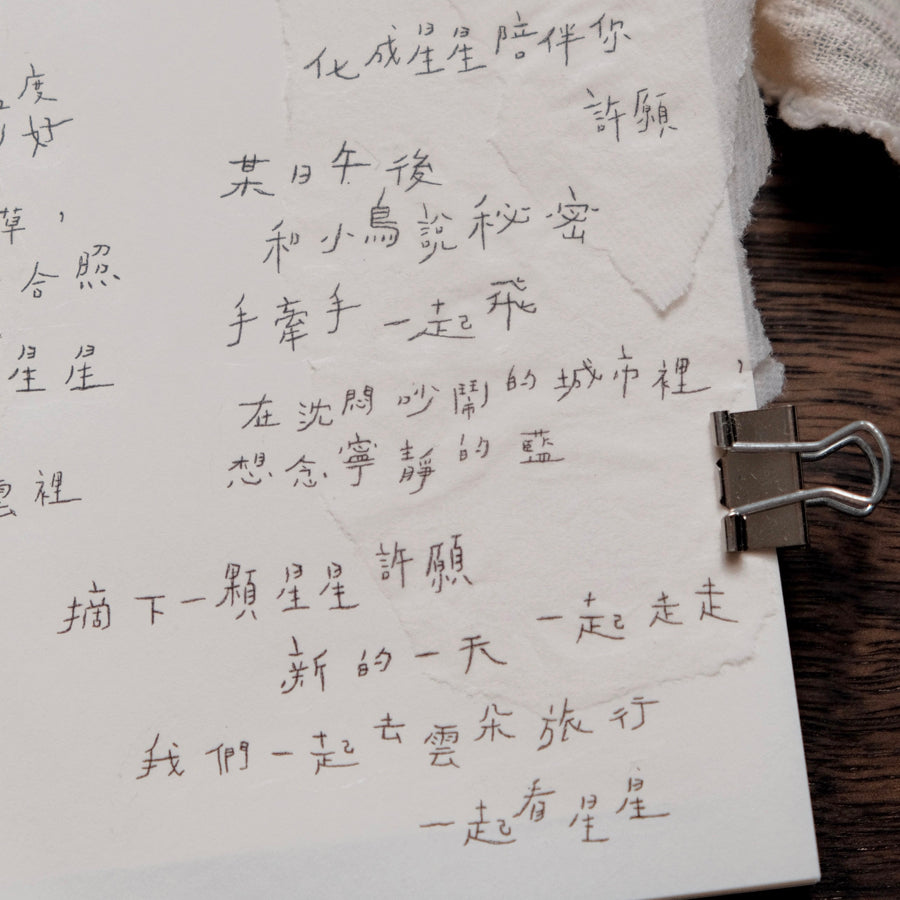 化成星星陪伴你
度
好
許願
某日午後
草，
和小鳥說秘密
合照
手牽手一起飛
星星
在沈悶吵鬧的城市裡，
想念寧靜的藍
雲裡
摘下一顆星星許願
新的一天 一起走走
我們一起去雲朵旅行
一起看星星